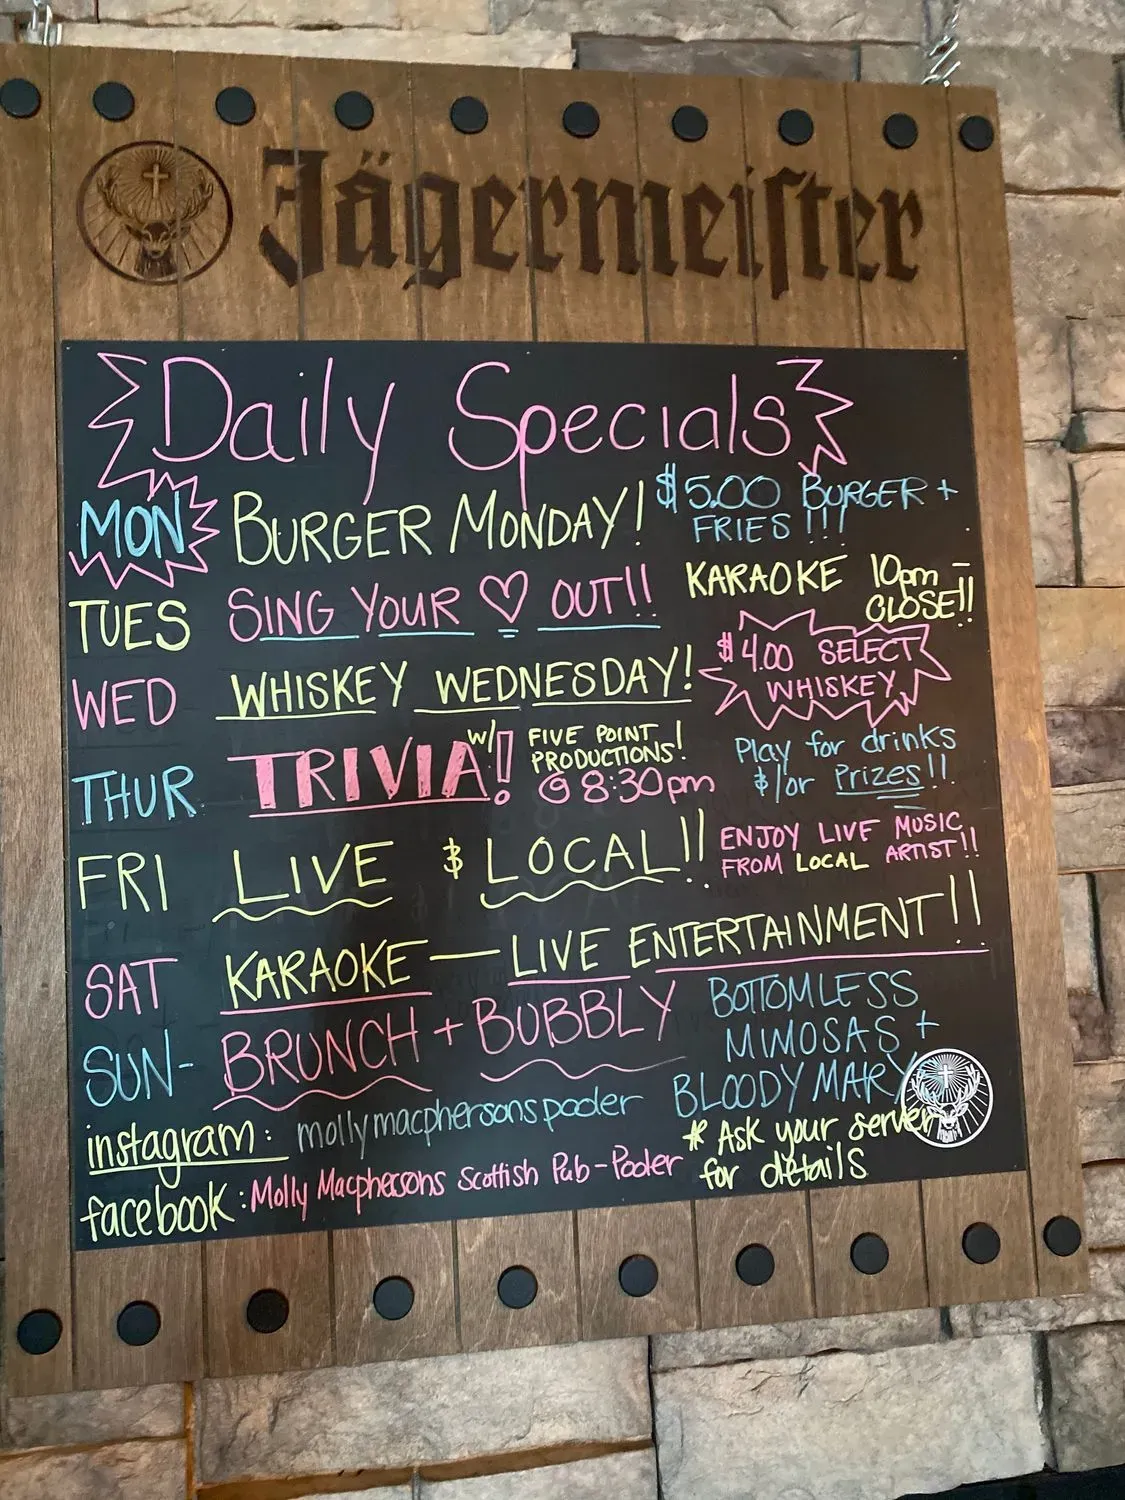 Jägermeister
Daily Specials
MON BURGER MONDAY! $5.00 BURGER +
FRIES!!!
TUES SING YOUR ♡ OUT!! KARAOKE 10pm -
CLOSE!!
WED WHISKEY WEDNESDAY! $4.00 SELECT
WHISKEY
THUR TRIVIA! w/ FIVE POINT
PRODUCTIONS!
@ 8:30pm
Play for drinks
$/or Prizes!!
FRI LIVE $ LOCAL!! ENJOY LIVE MUSIC
FROM LOCAL ARTIST!!
SAT KARAOKE — LIVE ENTERTAINMENT!!
SUN- BRUNCH + BUBBLY BOTTOMLESS
MIMOSAS +
BLOODY MARY
* Ask your server
for details
instagram: mollymacphersonspooler
facebook: Molly Macphersons Scottish Pub-Pooler